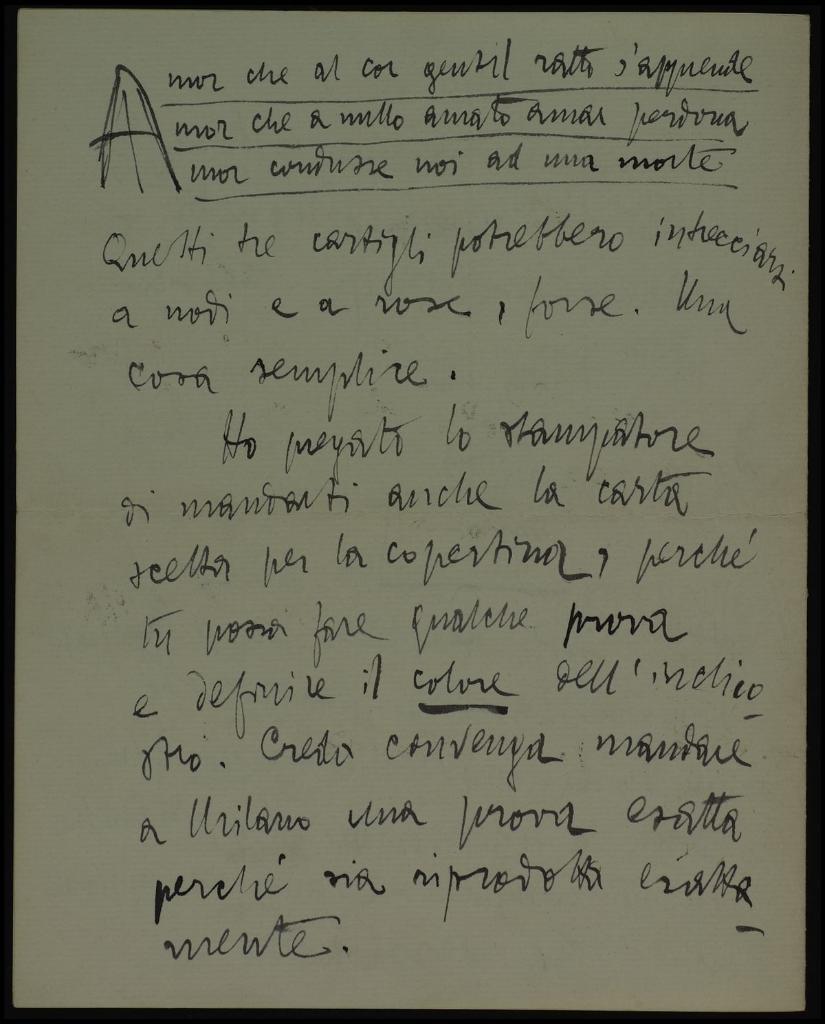 Amor che al cor gentil ratto s'apprende
Amor che a nullo amato amar perdona
Amor condusse noi ad una morte
Questi tre cartigli potrebbero intrecciarsi
a nodi e a rose, forse. Una
cosa semplice.
Ho pregato lo stampatore
di mandarti anche la carta
scelta per la copertina, perché
tu possa fare qualche prova
e definire il colore dell'inchio-
stro. Credo convenga mandare
a Milano una prova esatta
perché sia riprodotta esatta-
mente.